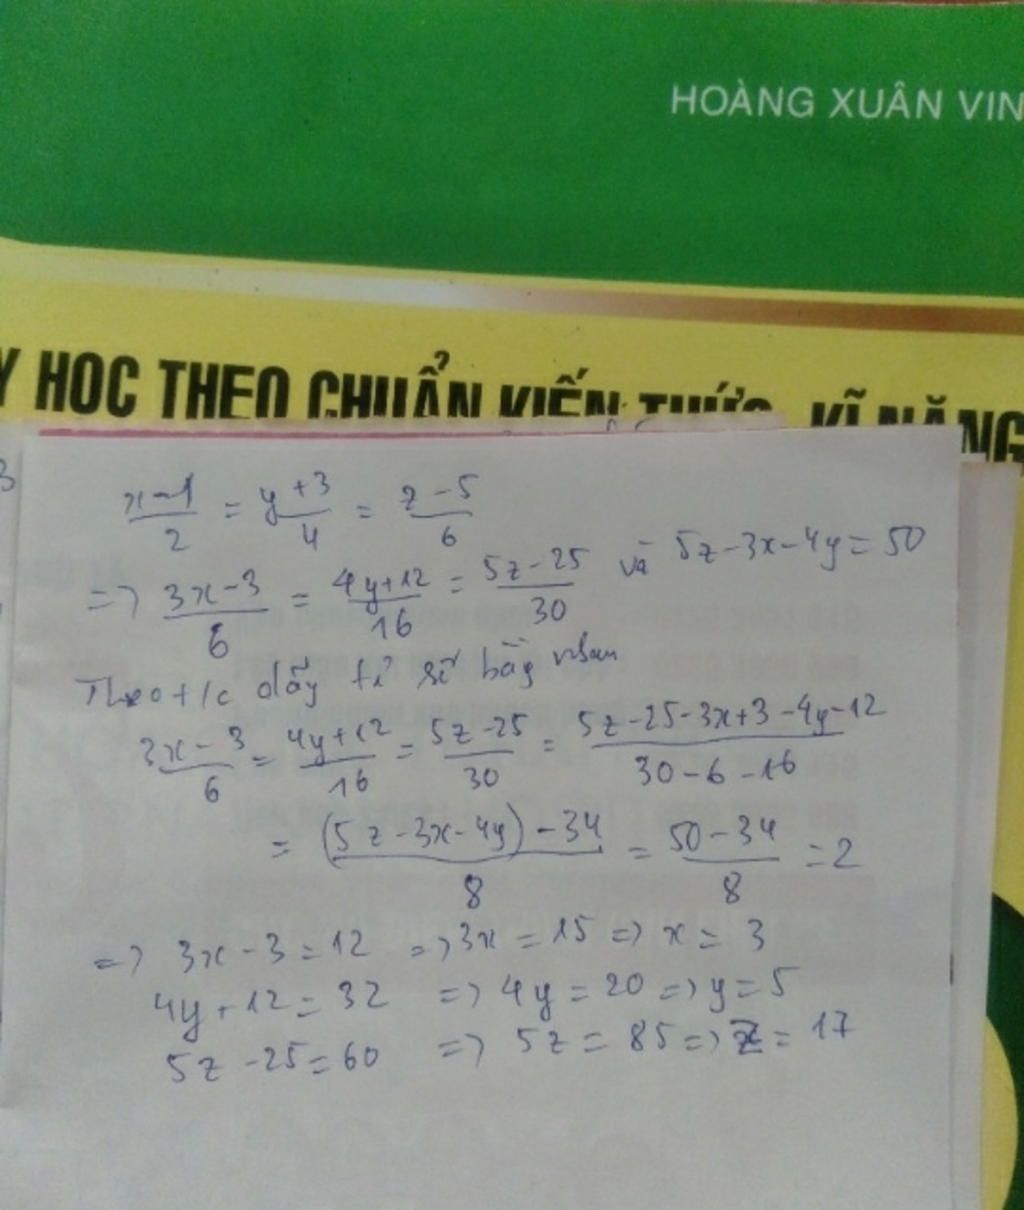 HOÀNG XUÂN VIN
Y HỌC THEO CHUẨN KIẾN THỨC, KĨ NĂNG
3
x-1/2 = y+3/4 = z-5/6
=> 3x-3/6 = 4y+12/16 = 5z-25/30 và 5z-3x-4y=50
Theo t/c dãy tỉ số bằg nhau
3x-3/6 = 4y+12/16 = 5z-25/30 = 5z-25-3x+3-4y-12/30-6-16
= (5z-3x-4y)-34/8 = 50-34/8 =2
=> 3x-3=12 => 3x=15 => x=3
4y+12=32 => 4y=20 => y=5
5z-25=60 => 5z=85 => z=17